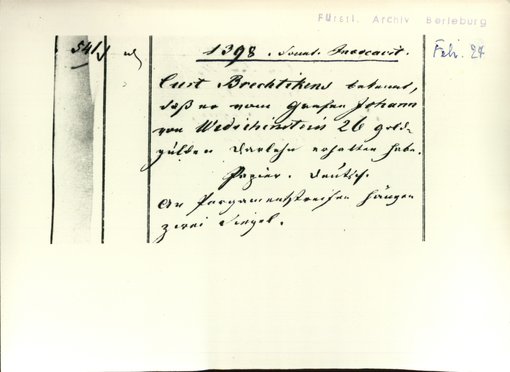 Fürstl. Archiv Berleburg
54/
1398. Sonnt. Invocavit.
Febr. 24
Curt Brechtekens bekennt,
daß er vom Grafen Johann
von 26 Gold-
gülden Darlehn erhalten habe.
Papier. Deutsch.
An Pergamentstreifen hängen
zwei Siegel.